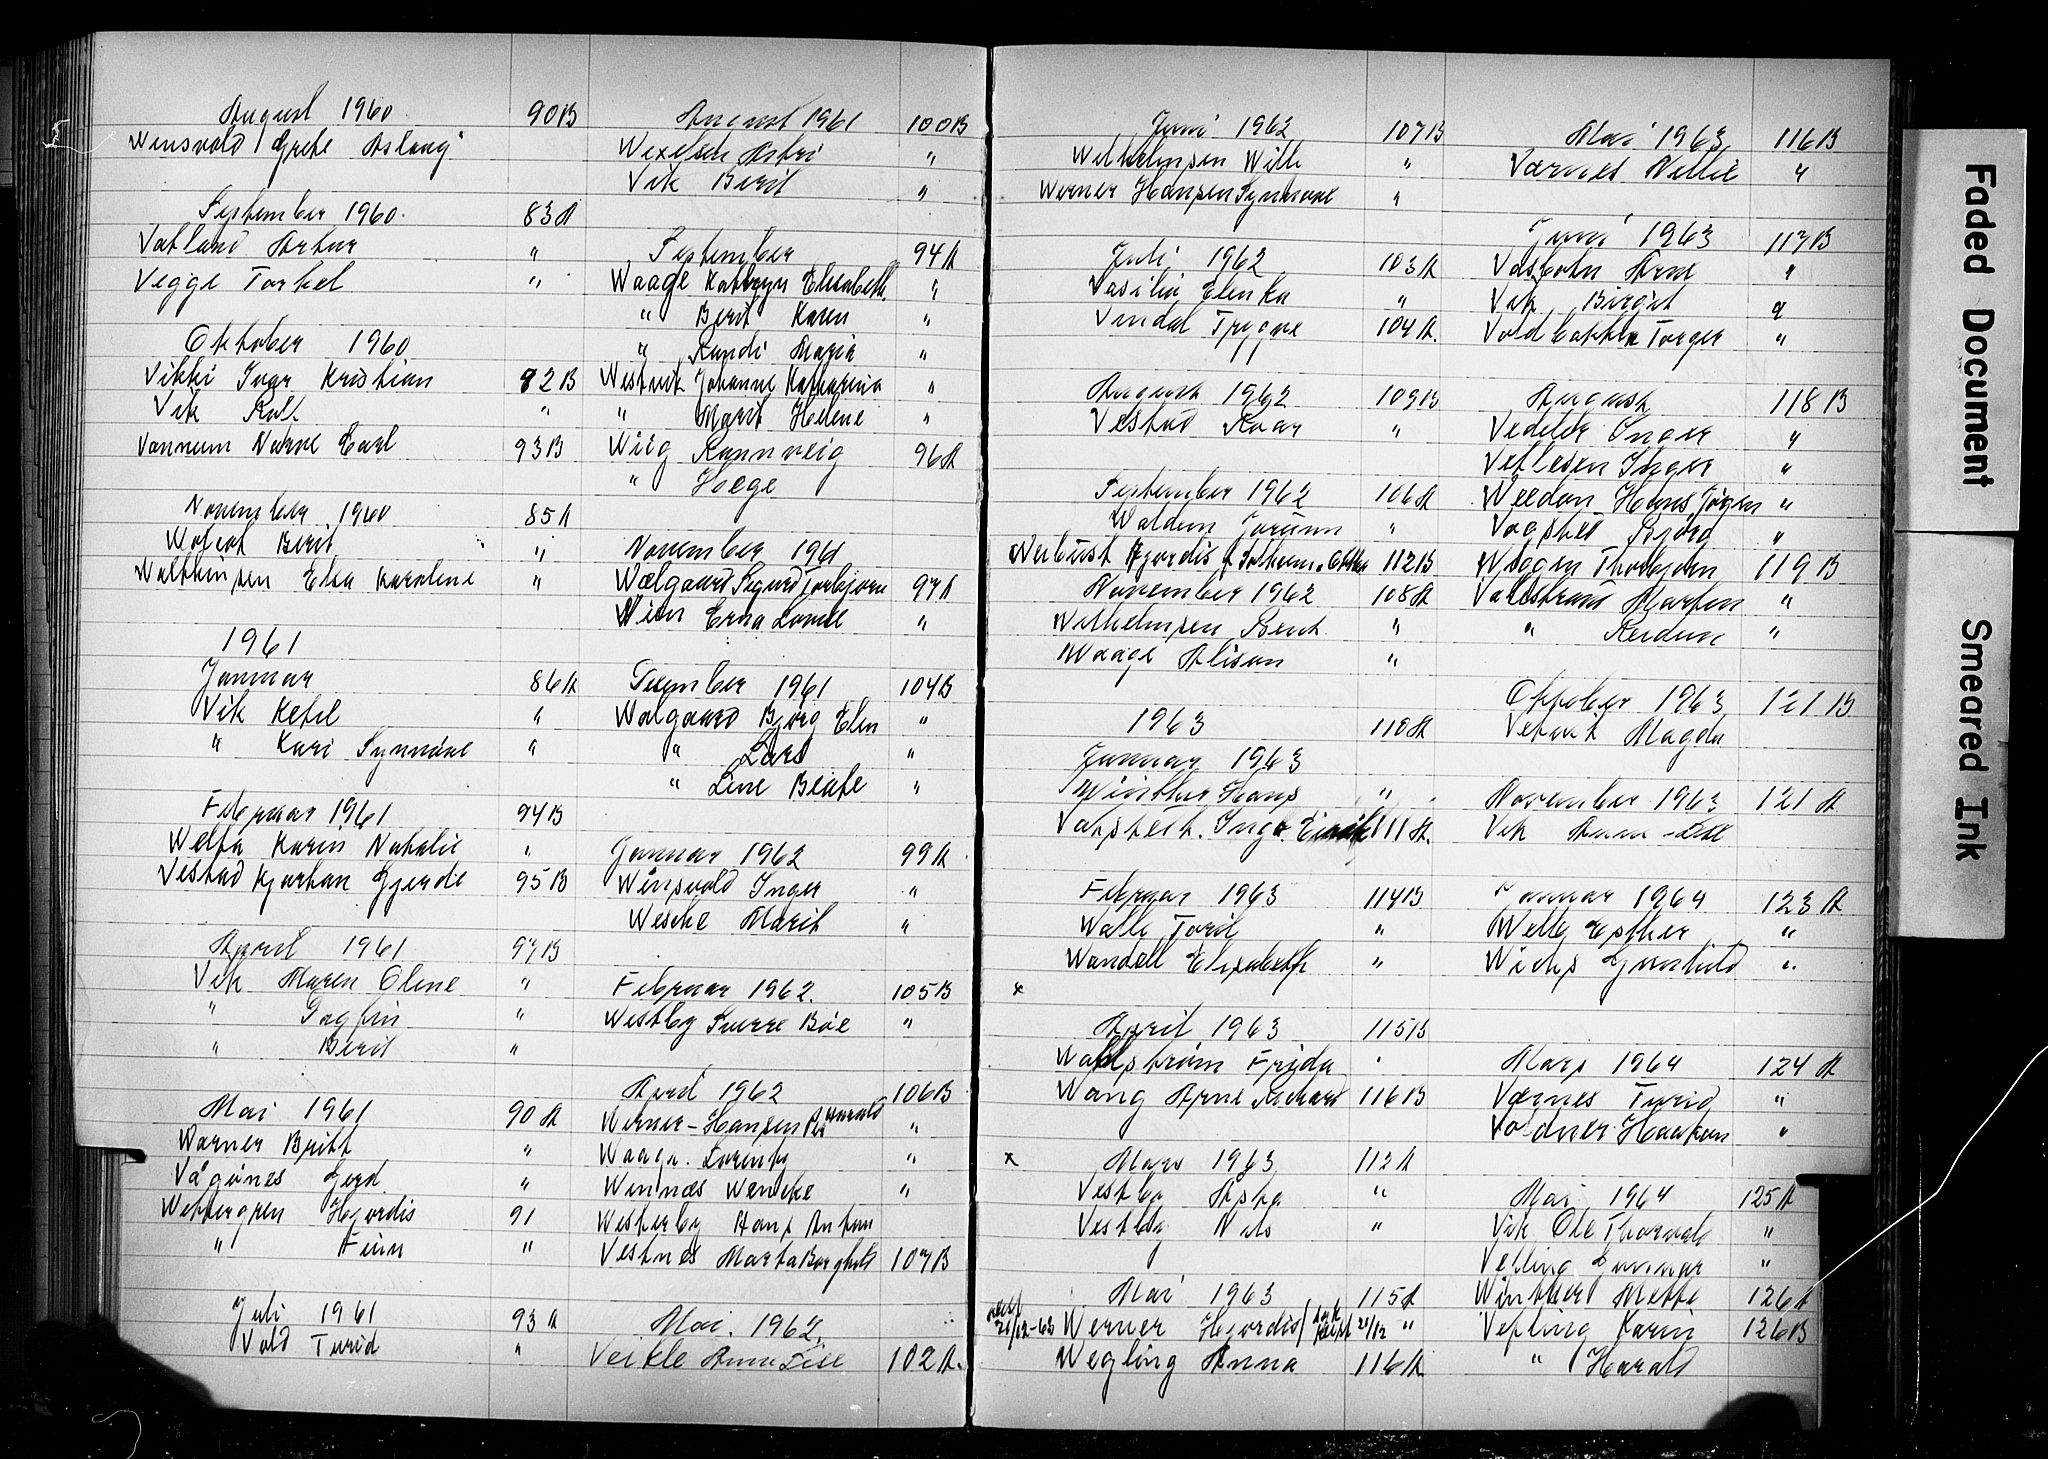 August 1960 90B
Wensvold Grete Aslaug
September 1960. 83A
Vatland Artur "
Vegge Torkel "
Oktober 1960
Vikki Ivar Kristian 92B
Vik Rolf "
Vannum Narve Carl 93B
November 1960 85A
Berit "
Elsa Karoline "
1961
Januar 86A
Vik Ketil "
" Kari Synnöve "
Februar 1961 94B
Welta Karin Natalie "
Vestad Kjartan Gjerde 95B
April 1961 97B
Vik Maren Oline "
" Dagfin "
" Berit "
Mai 1961 90A
Warner Britt "
Vågönes Gerd "
Wettergren Hjördis 91
" Finn "
Juli 1961 93A
Vold Turid "
August 1961 100B
Wexelsen Astri "
Vik Berit "
September 94A
Waage Kathryn Elisabeth "
" Berit Karen "
" Randi Maria "
Westvik Johanne Katharina "
" Marit Helene "
Wiig Rannveig 96A
" Hege
November 1961
Wælgaard Sigurd Torbjörn 97A
Wien Erna Lovise "
Desember 1961 104B
Walgaard Bjørg Elin "
" Lars "
" Line Beate "
Januar 1962 99A
Winsvold Inger "
Wesche Marit "
Februar 1962. 105B
Westby Sverre Böe "
April 1962 106B
Werner-Hansen Per Harald "
Waage. Lorentz "
Winnæs Wencke "
Westerby Hans Anton
Vestnes Marta Borghild 107B
Mai. 1962.
Veikle Anne Lise 102A.
Juni 1962 107B
Wilhelmsen Wille "
Werner Hansen Synnøve "
Juli 1962 103A
Vasilia Elenka "
Vindal Trygve 104A.
August 1962 109B
Vestad Roar "
September 1962 106A
Waldem Jorunn "
112B
November 1962 108A
Wilhelmsen Bent "
Waage Alison "
1963 110A
Januar 1963
Winther Hans "
Inga 111A.
Februar 1963 114B
Walle Toril "
Wandell Elisabeth "
x
April 1963 115B
Wahlstrøm Frida "
Wang Arne Richard 116B
x Mars 1963 112A
Vestby Asta "
Vestby Nils "
Mai 1963 115A
21/12-63 Werner Hjördis / 21/12 "
Wegling Anna 116A
Mai 1963 116B
Værnes Nillie "
Juni 1963 117B
Vasbotn Arne "
Vik Birgit "
Torger "
August 118B
Vedeler Inger "
Vetlesen Inger "
Weedon Hans Jögen "
Vagstad Sigurd "
Wiggen Thorbjørn 119B
Vallestrand Morten "
" Reidun "
Oktober 1963 121B
Vetvik Magda
November 1963 121A
Vik Anne-Lise
Januar 1964 123A
Welle Esther "
Wichs Gunhild "
Mars 1964 124A
Værnes Turid "
Voldner Haakon "
Mai 1964 125A
Vik Ole Thorvald "
Vefling Gunnar "
Winther Mette 126A
Vefling Karin 126B
" Harald
Faded Document
Smeared Ink